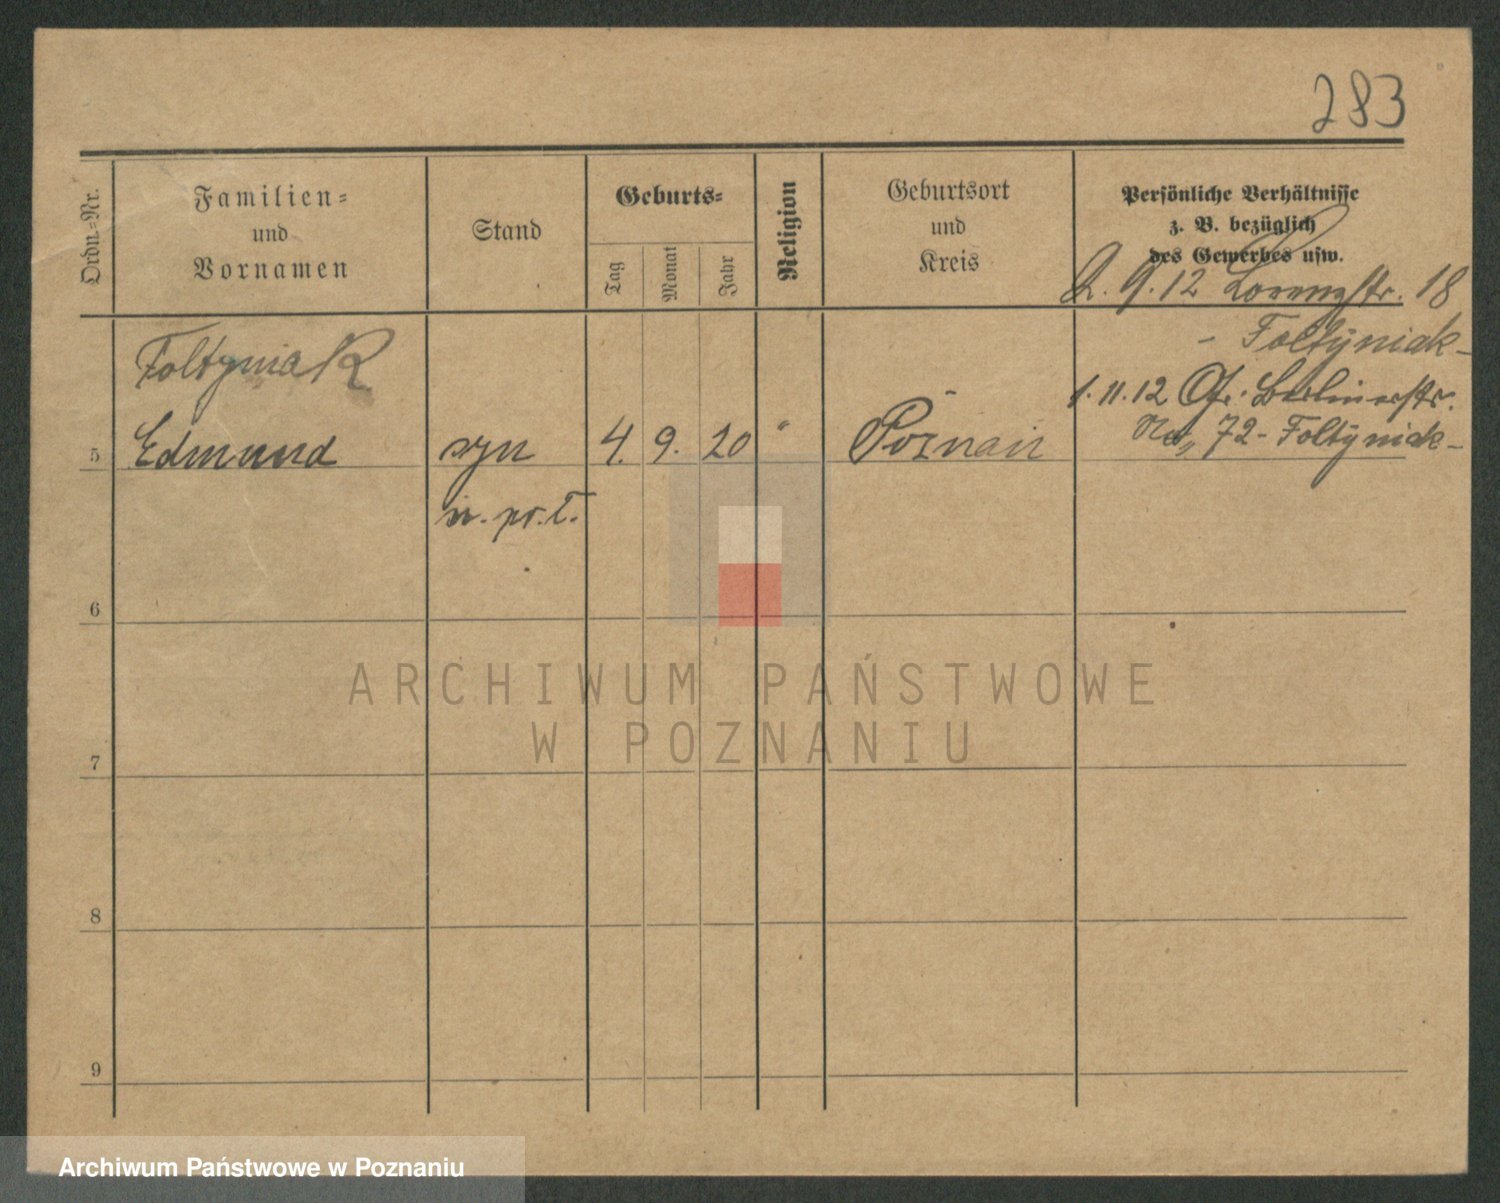 283
Ordn.=Nr.
Familien=
und
Vornamen
Stand
Geburts=
Tag
Monat
Jahr
Religion
Geburtsort
und
Kreis
Persönliche Verhältnisse
z. B. bezüglich
des Gewerbes usw.
2. 9. 12 Lorenzstr. 18
- Foltyniak -
1. 11. 12 Berlinerstr.
72 - Foltyniak -
FoltyniaK
5 Edmund syn 4. 9. 20 " Poznań
6
7
8
9
ARCHIWUM PAŃSTWOWE
W POZNANIU
Archiwum Państwowe w Poznaniu